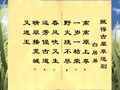 赋得古原草送别
白居易
离离原上草
一岁一枯荣
野火烧不尽
春风吹又生
远芳侵古道
晴翠接荒城
又送王